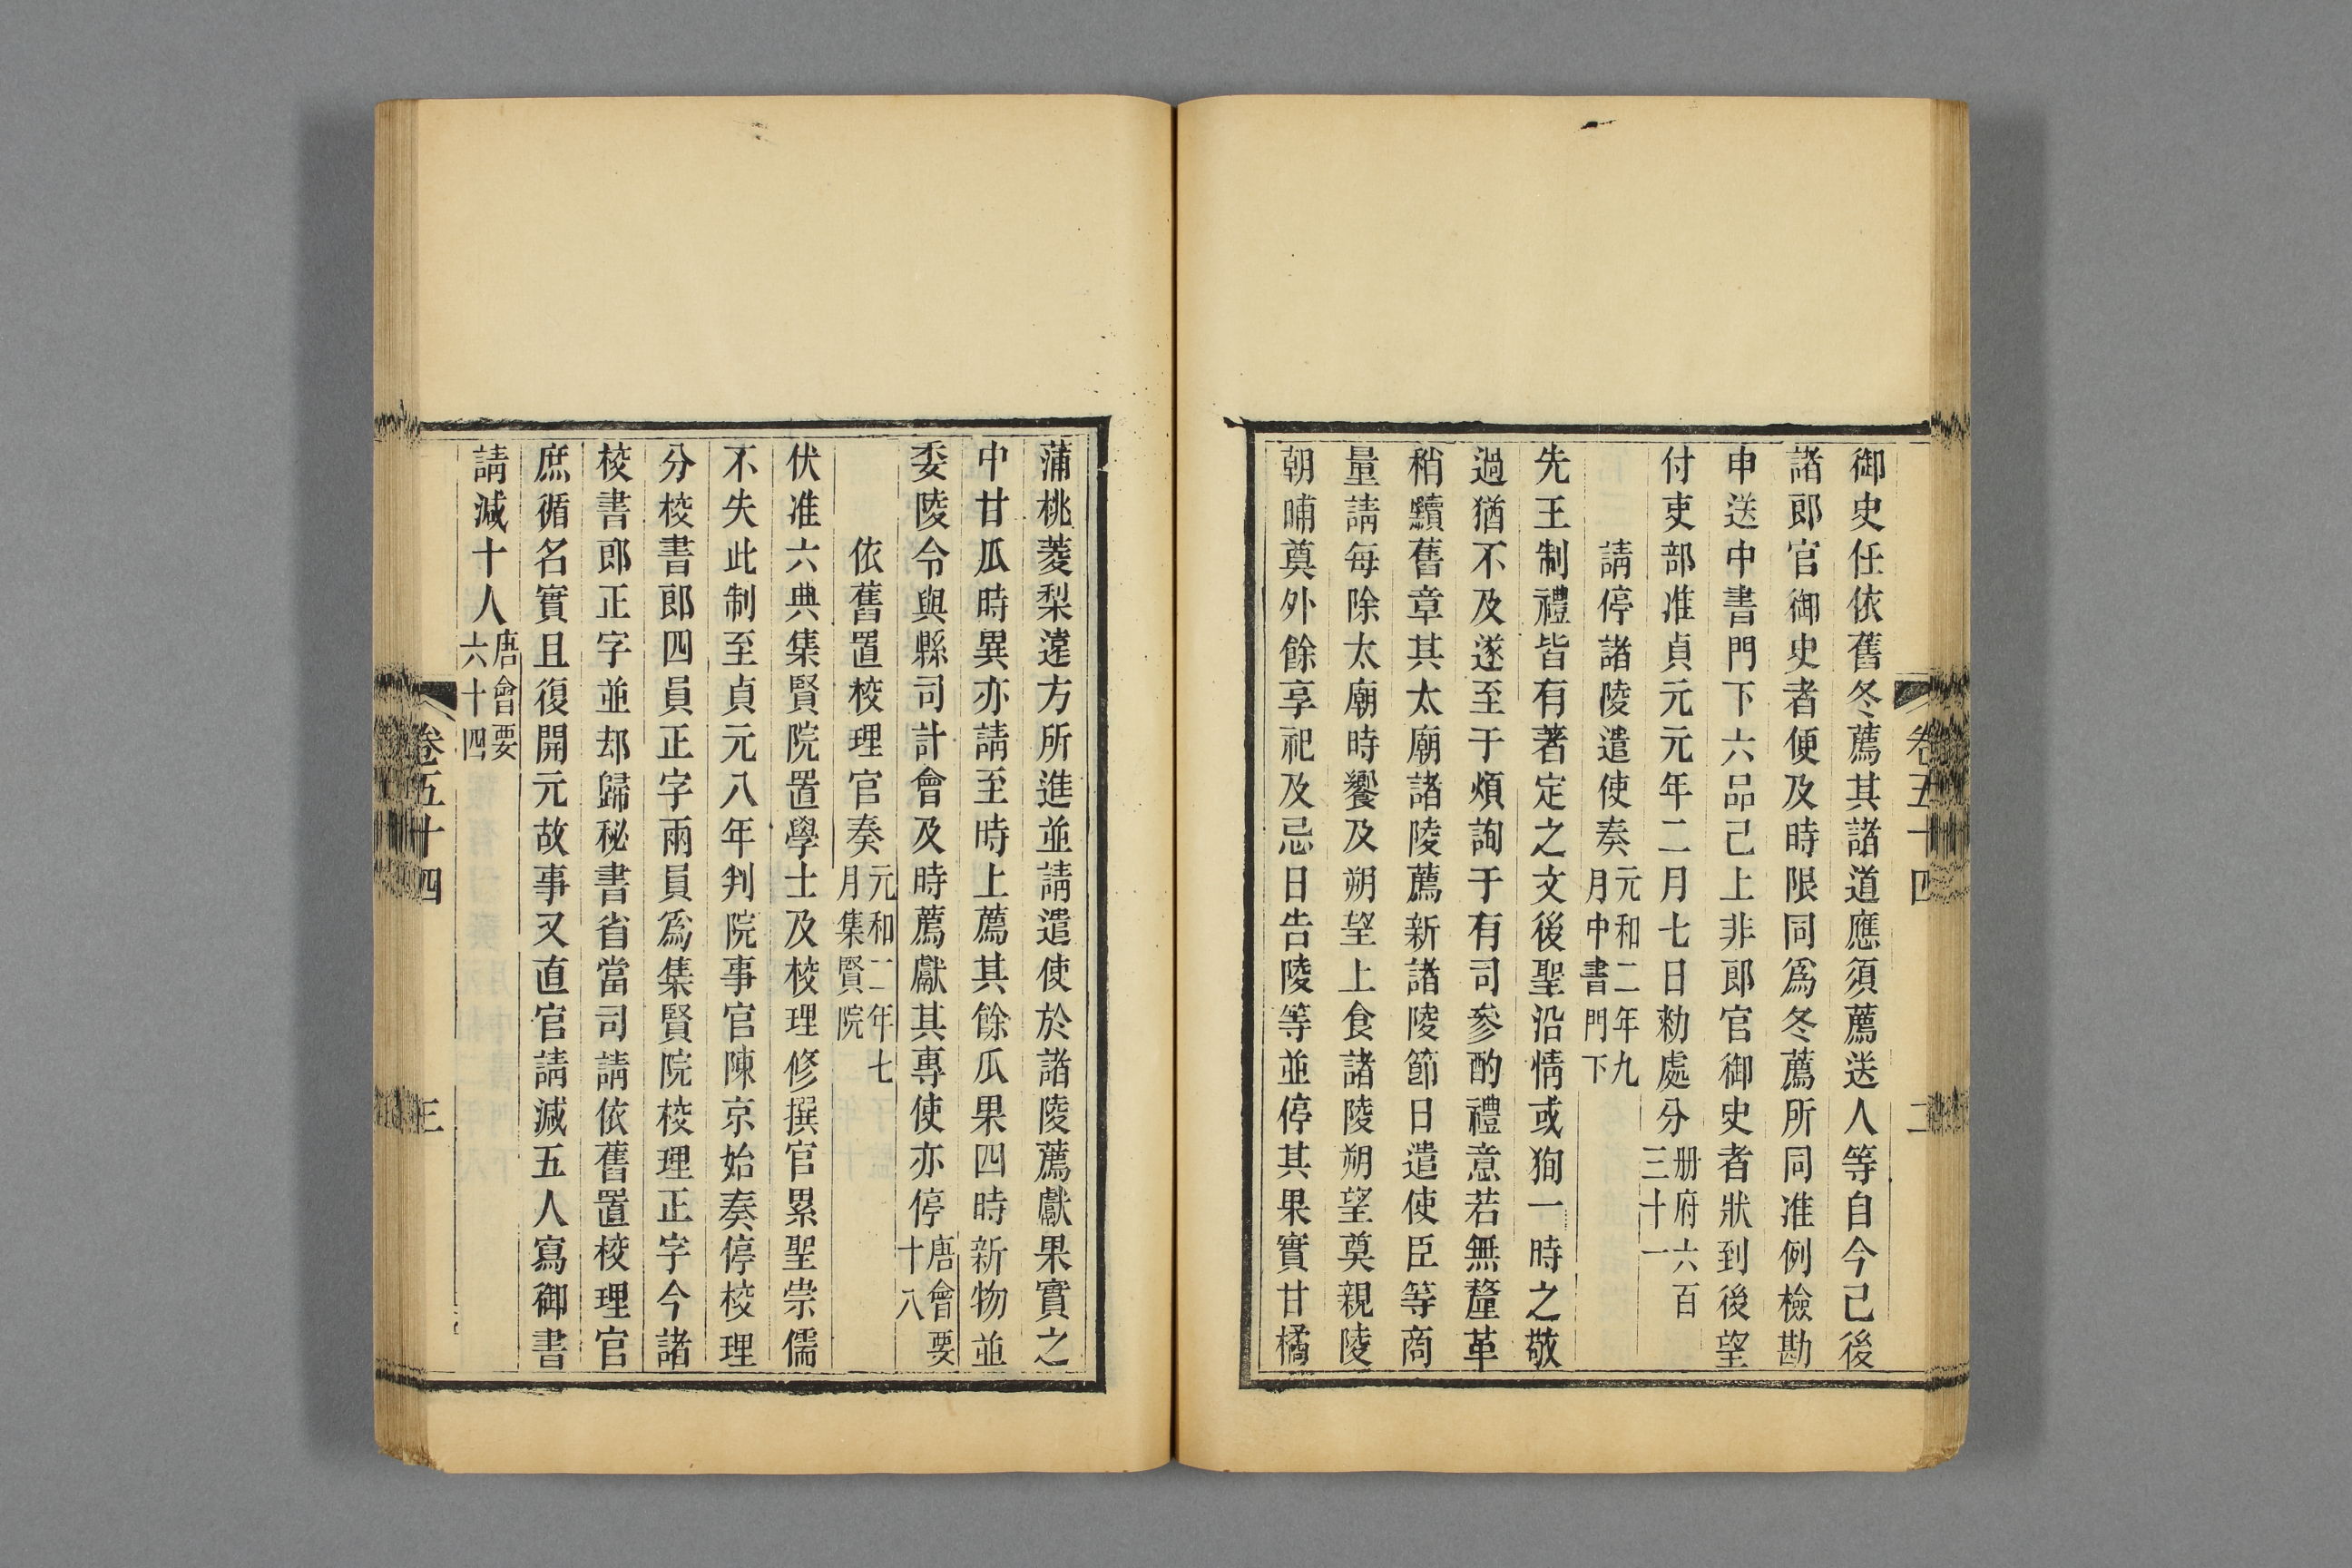 御史任依舊冬薦其諸道應須薦送人等自今己後
諸郎官御史者便及時限同爲冬薦所同准例檢勘
申送中書門下六品己上非郎官御史者狀到後望
付吏部准貞元元年二月七日勑處分册府六百三十一
請停諸陵遣使奏元和二年九月中書門下
先王制禮皆有著定之文後聖沿情或狥一時之敬
過猶不及遂至于煩詢于有司參酌禮意若無釐革
稍黷舊章其太廟諸陵薦新諸陵節日遣使臣等商
量請每除太廟時饗及朔望上食諸陵朔望奠親陵
朝晡奠外餘享祀及忌日告陵等並停其果實甘橘
卷五十四
二
蒲桃菱梨遠方所進並請遣使於諸陵薦獻果實之
中甘瓜時異亦請至時上薦其餘瓜果四時新物並
委陵令與縣司計會及時薦獻其專使亦停唐會要十八
依舊置校理官奏元和二年七月集賢院
伏准六典集賢院置學士及校理修撰官累聖崇儒
不失此制至貞元八年判院事官陳京始奏停校理
分校書郎四員正字兩員爲集賢院校理正字今諸
校書郎正字並却歸秘書省當司請依舊置校理官
庶循名實且復開元故事又直官請減五人寫御書
請減十人唐會要六十四
卷五十四
三